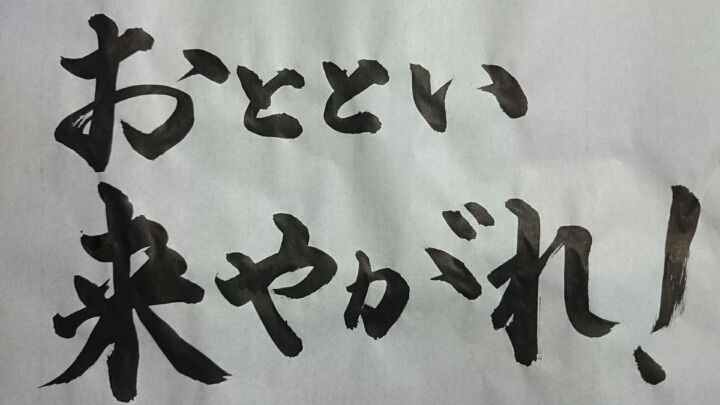 おととい
来やがれ!